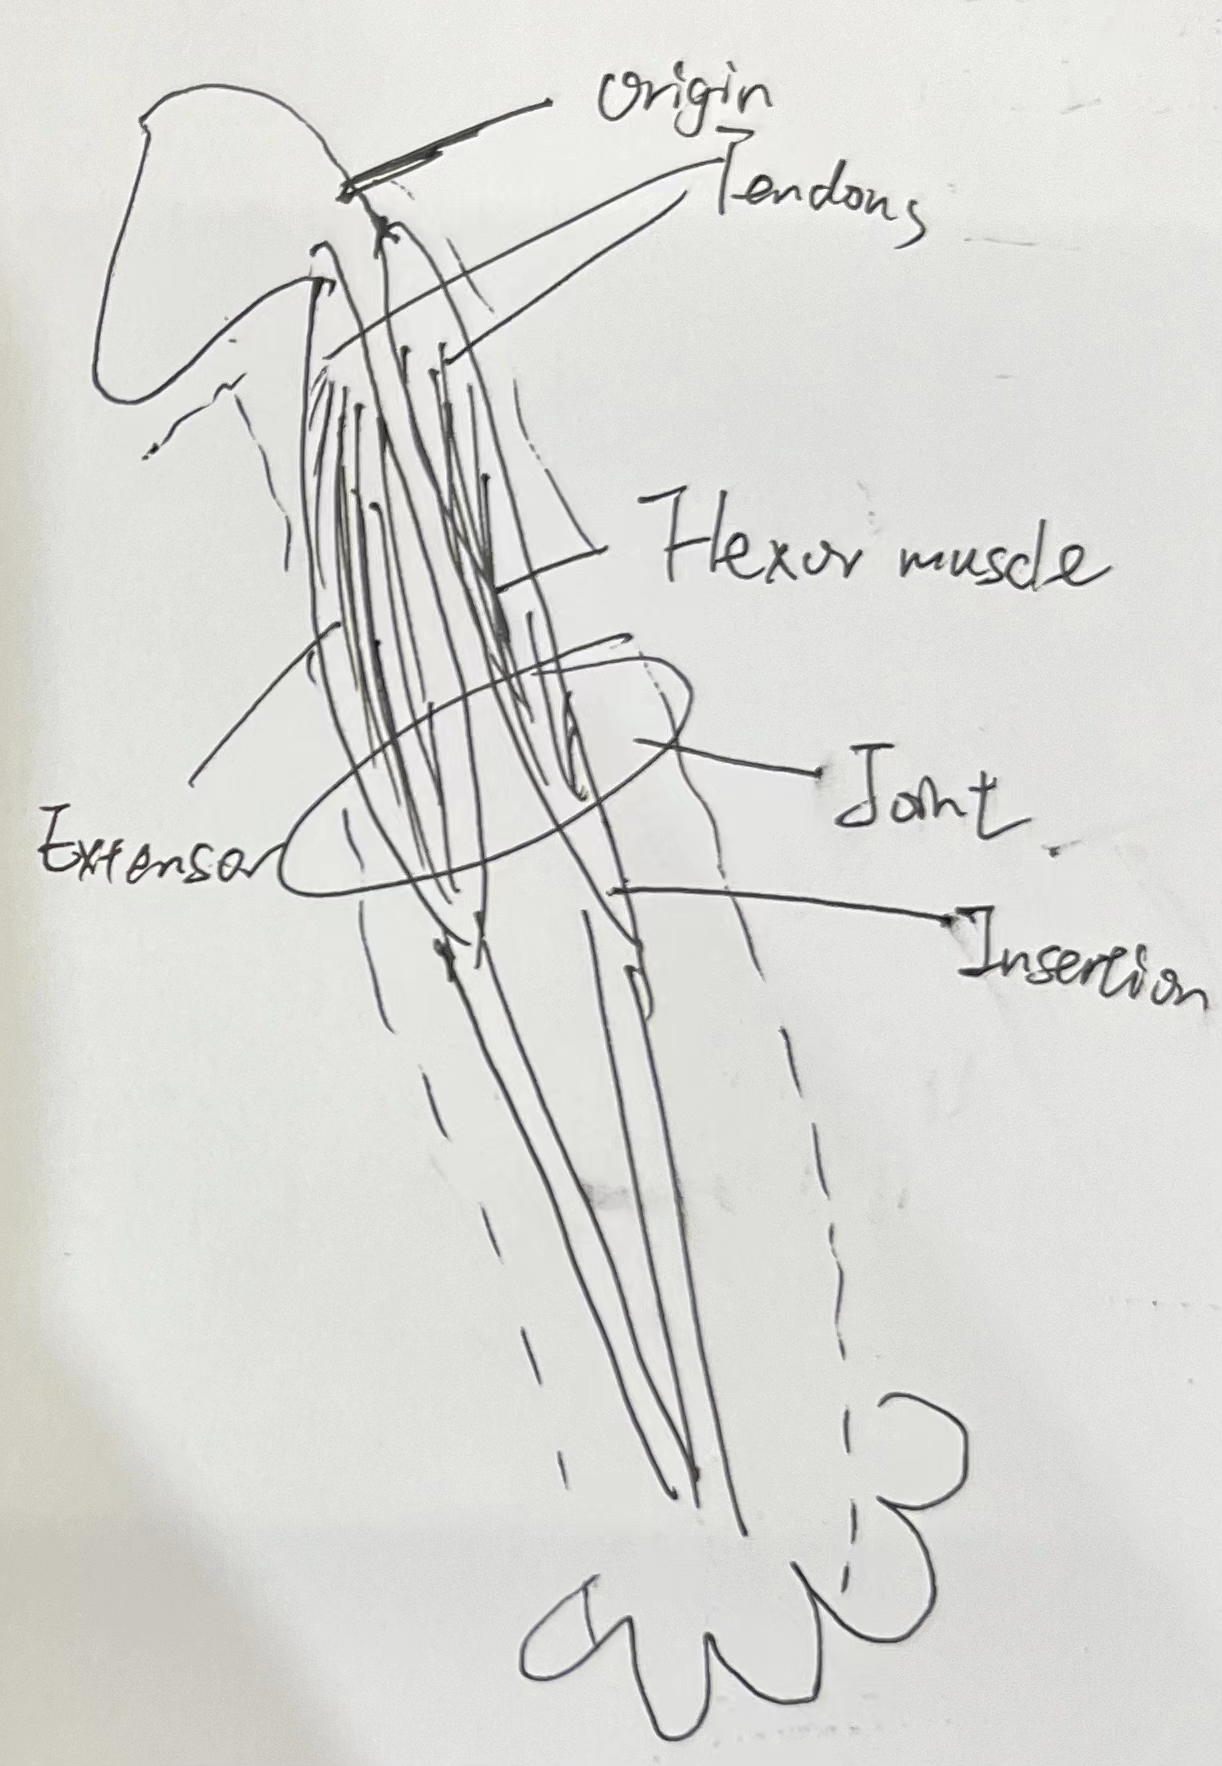 Origin
Tendons
Flexor muscle
Joint
Extensor
Insertion